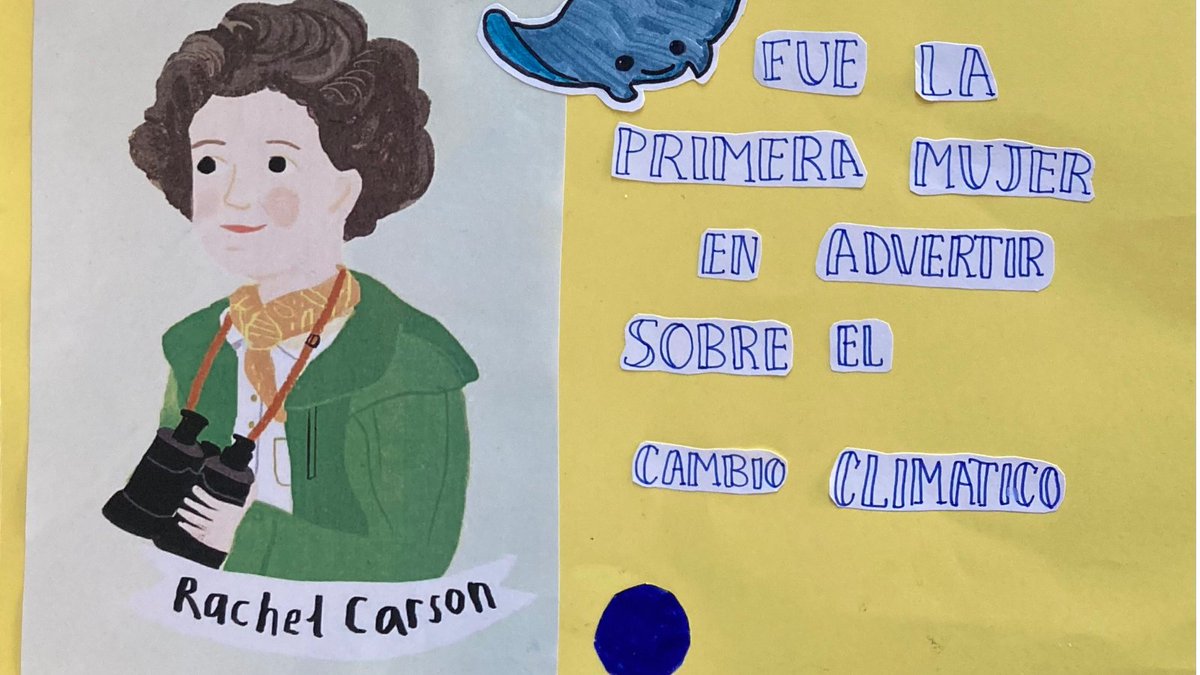 FUE LA
PRIMERA MUJER
EN ADVERTIR
SOBRE EL
CAMBIO CLIMATICO
Rachel Carson